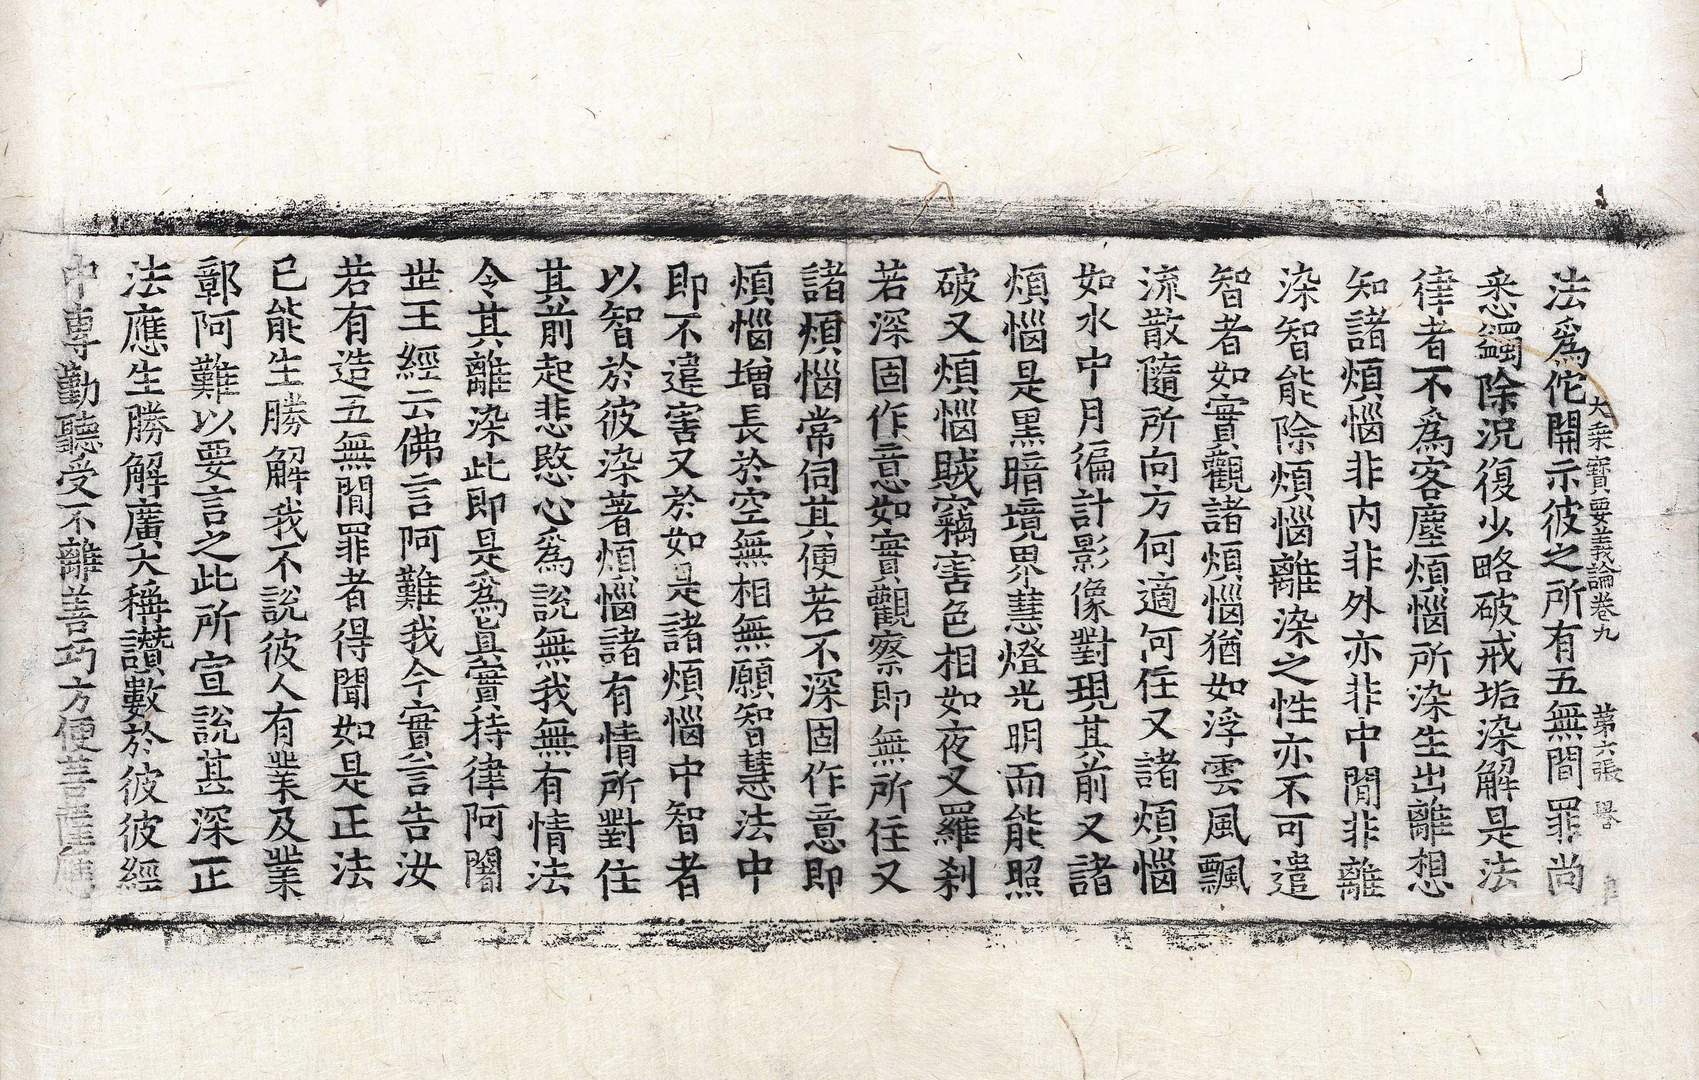 法爲他開示彼之所有五無間罪尚
悉蠲除況復少略破戒垢染解是法
律者不爲客塵煩惱所染生出離想
知諸煩惱非內非外亦非中間非離
染智能除煩惱離染之性亦不可遣
智者如實觀諸煩惱猶如浮雲風飄
流散隨所向方何適何住又諸煩惱
如水中月徧計影像對現其前又諸
煩惱是黑暗境界慧燈光明而能照
破又煩惱賊竊害色相如夜叉羅刹
若深固作意如實觀察即無所住又
諸煩惱常伺其便若不深固作意即
煩惱增長於空無相無願智慧法中
即不違害又於如是諸煩惱中智者
以智於彼染著煩惱諸有情所對住
其前起悲愍心爲說無我無有情法
令其離染此即是爲眞實持律阿闍
世王經云佛言阿難我今實言告汝
若有造五無間罪者得聞如是正法
已能生勝解我不說彼人有業及業
鄣阿難以要言之此所宣說甚深正
法應生勝解廣大稱讚數於彼彼經
中專勤聽受不離善巧方便菩薩
大乘寶要義論卷九　第六張　譽